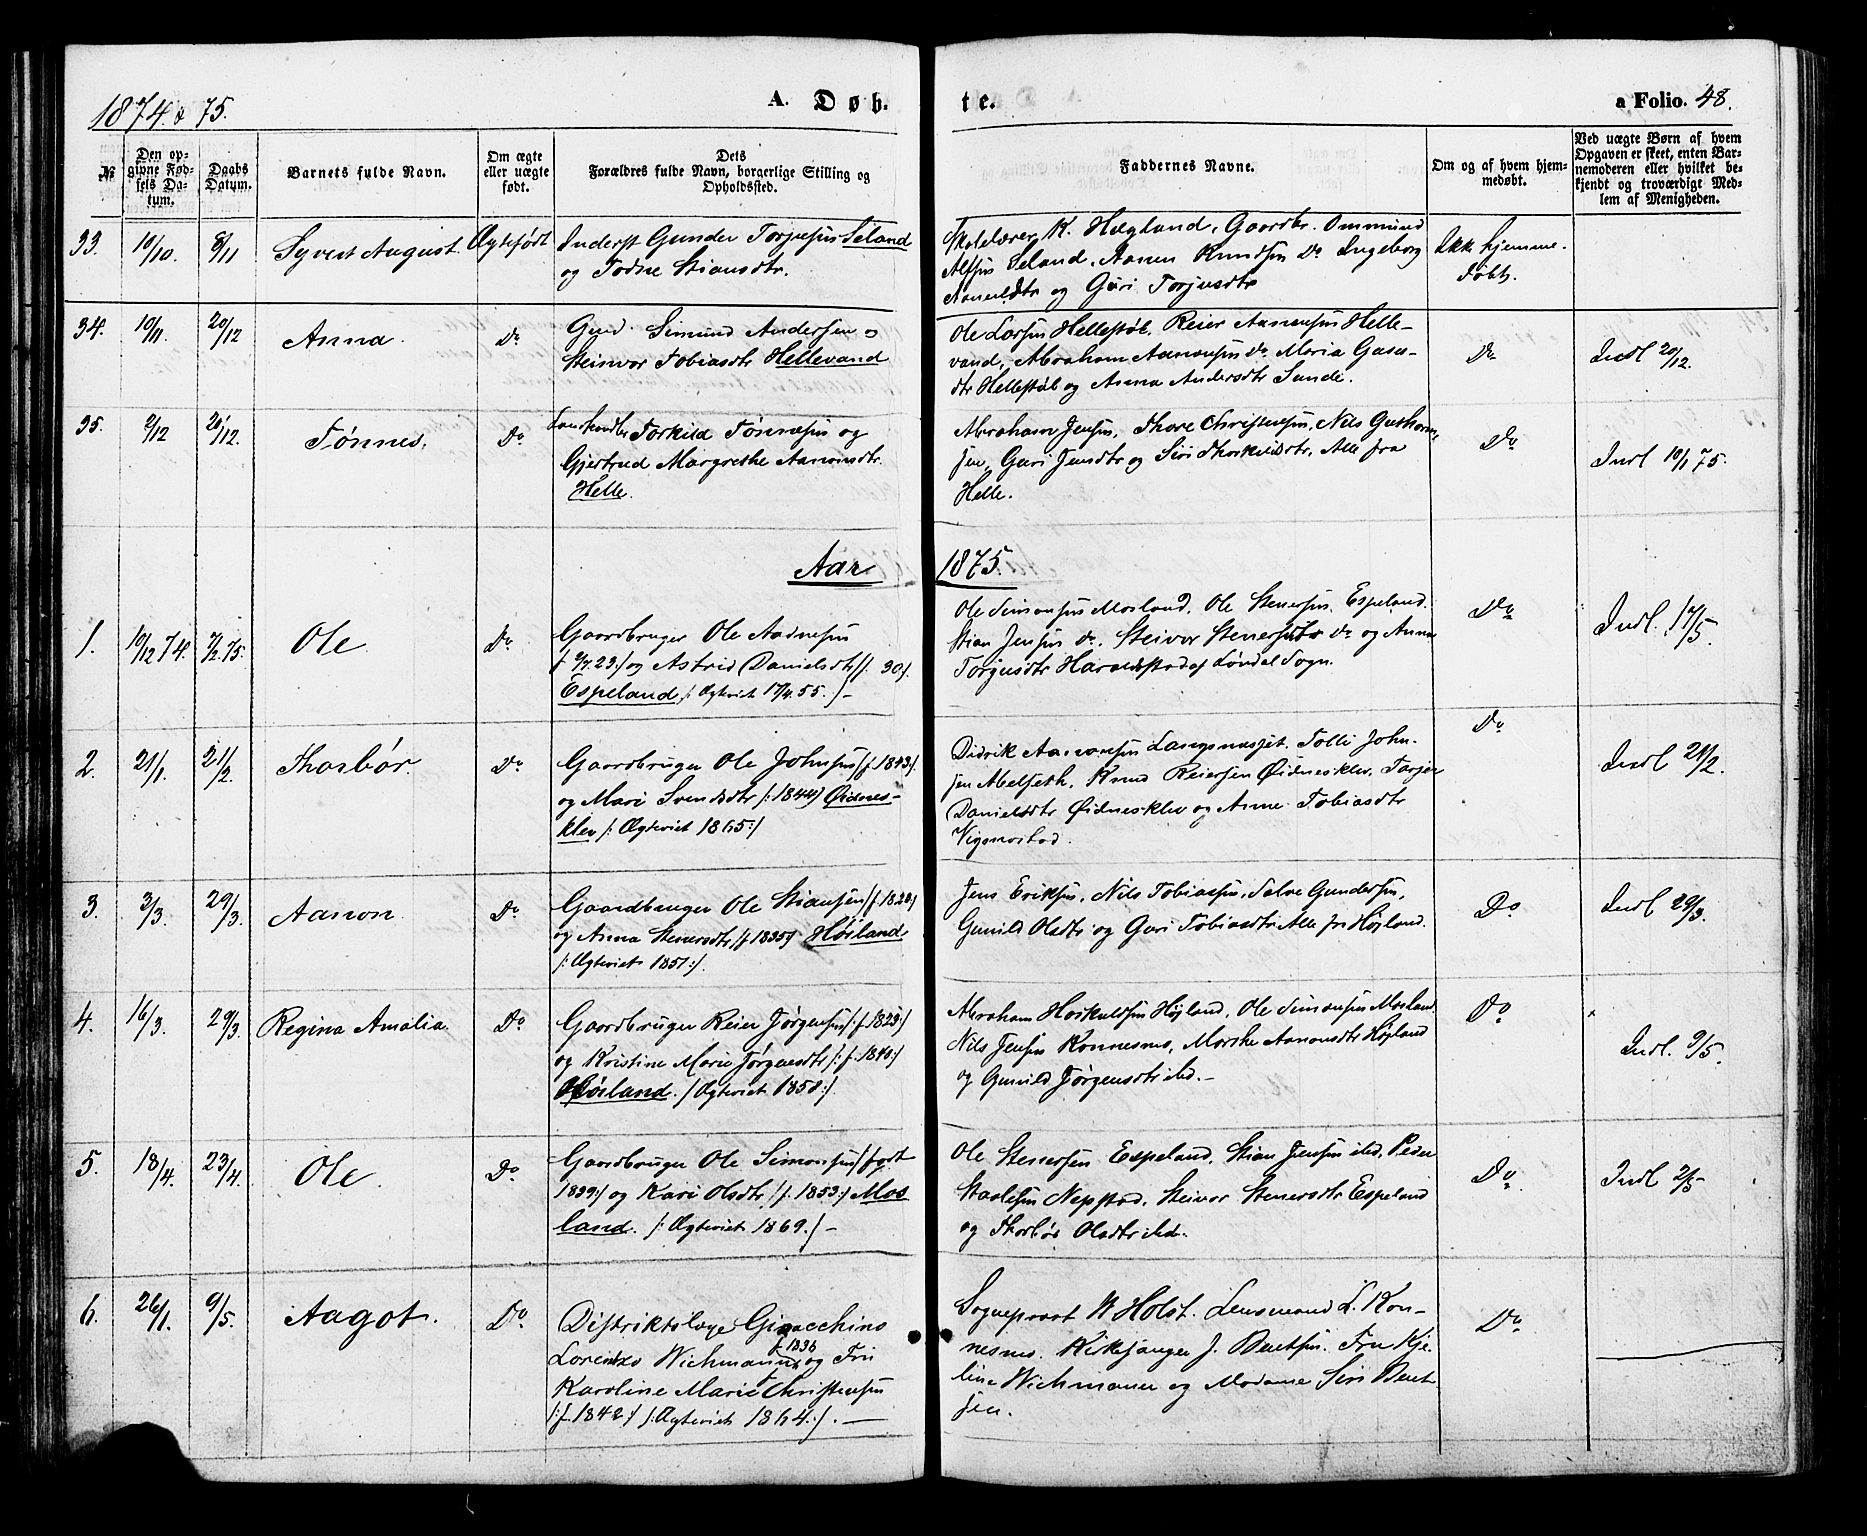 1874 & 75.
A. Døb-
te.
a Folio. 48.
№
Den op-
givne Fød-
sels Da-
tum.
Daabs
Datum.
Barnets fulde Navn.
Om ægte
eller uægte
født.
Dets
Forældres fulde Navn, borgerlige Stilling og
Opholdssted.
Faddernes Navne.
Om og af hvem hjem-
medøbt.
Ved uægte Børn af hvem
Opgaven er skeet, enten Bar-
nemoderen eller hvilket be-
kjendt og troværdigt Med-
lem af Menigheden.
33. 10/10. 8/11 Syvert August. Ægtefødt
Inderst Gunder Torjusen Seland
og Todne Stiansdtr.
Skolelærer K. Hægland, Gaardbr. Ommund
Alfsen Seland, Aanen Knudsen Do Ingeborg
og Guri Torjusdtr
Ikk hjemme-
døbt.
34. 10/11. 20/12 Anna. Do
Gmd. Simund Andersen og
Steinvor Tobiasdtr Hellevand
Ole Larsen Hellestøl. Reier Aanensen Helle-
vand, Abraham Aanensen do. Maria
dtr Hellestøl og Anna Andersdtr Sunde.
Do
Indl 20/12.
35. 9/12 26/12. Tønnes. Do
Torkild Tønnesen og
Gjertrud Margrethe Aanonsdtr.
Helle.
Abraham Jensen, Thore Christensen, Nils Guthorm-
sen, Guri Jensdtr og Siri Thorkildsdtr, Alle fra
Helle.
Do
Indl 10/1 75.
Aar 1875.
1. 10/12 74. 7/2. 75. Ole. Do
Gaardbruger Ole Aadnesen
og Astrid Danielsdtr /f. 30/.
Espeland /: Ægteviet 17/4. 55. /-
Ole Simonsen Mosland. Ole Stenersen. Espeland.
Stian Jensen do. Steivor Stenersdtr do og Anna
Torgusdtr Haraldstad af Løndal Sogn.
Do
Indl. 17/5.
2. 21/1. 21/2. Thorbør. Do
Gaardbruger Ole Johnsen /f. 1843/.
og Mari Svendsdtr /: 1844/ Øidnes-
klev /: Ægteviet 1865:/
Didrik Aanonsen. Tolli John-
sen Abelseth. Knud Reiersen Øidnesklev. Tarjer
Danielsdtr Øidnesklev og Anne Tobiasdtr
Vigmostad.
Do
Indl 21/2.
3. 3/3. 29/3. Aanon. Do
Gaardbruger Ole Stiansen /f. 1820/
og Anna Stenersdtr /f 1835/ Høiland.
/: Ægteviet 1851:/.
Jens Eriksen, Nils Tobiassen, Salve Gundersen,
Gunild Olsdtr og Guri Tobiasdtr Alle fra Højland.
Do
Indl 29/3.
4. 16/3. 29/3. Regina Amalia. Do
Gaardbruger Reier Jørgensen /f. 1823:/
og Kristine Marie Jørgensdtr /: f. 1840:/
Høiland. /Ægteviet 1858:/.
Abraham Hoskuldsen Højland, Ole Simonsen Mosland
Nils Jensen Konnesmo, Marthe Aanonsdtr Højland
og Gunild Jørgensdtr ibd.-
Do
Indl. 9/5.
5. 18/4. 23/4. Ole. Do
Gaardbruger Ole Simonsen /født
1839:/ og Kari Olsdtr /f. 1853:/ Mos
land. /: Ægteviet 1869./-
Ole Stenersen Espeland, Stian Jensen ibd, Peder
Staalesen Nepstad, Steivor Stenersdtr Espeland
og Thorbør Olsdtr ibd.
Do
Indl 2/5
6. 26/1. 9/5. Aagot. Do
Distriktslæge Gioacchino
f. 1836
Lorentzo Wichmann og Fru
Karoline Marie Christensen
/: f. 1842:/ /: Ægteviet 1864./. -
Sogneprast N Holst. Lensmand L. Kon-
nesmo. Kirkesanger J. Bentsen. Fru Kje-
line Wichmann og Madame Siri Bent-
sen.
Do